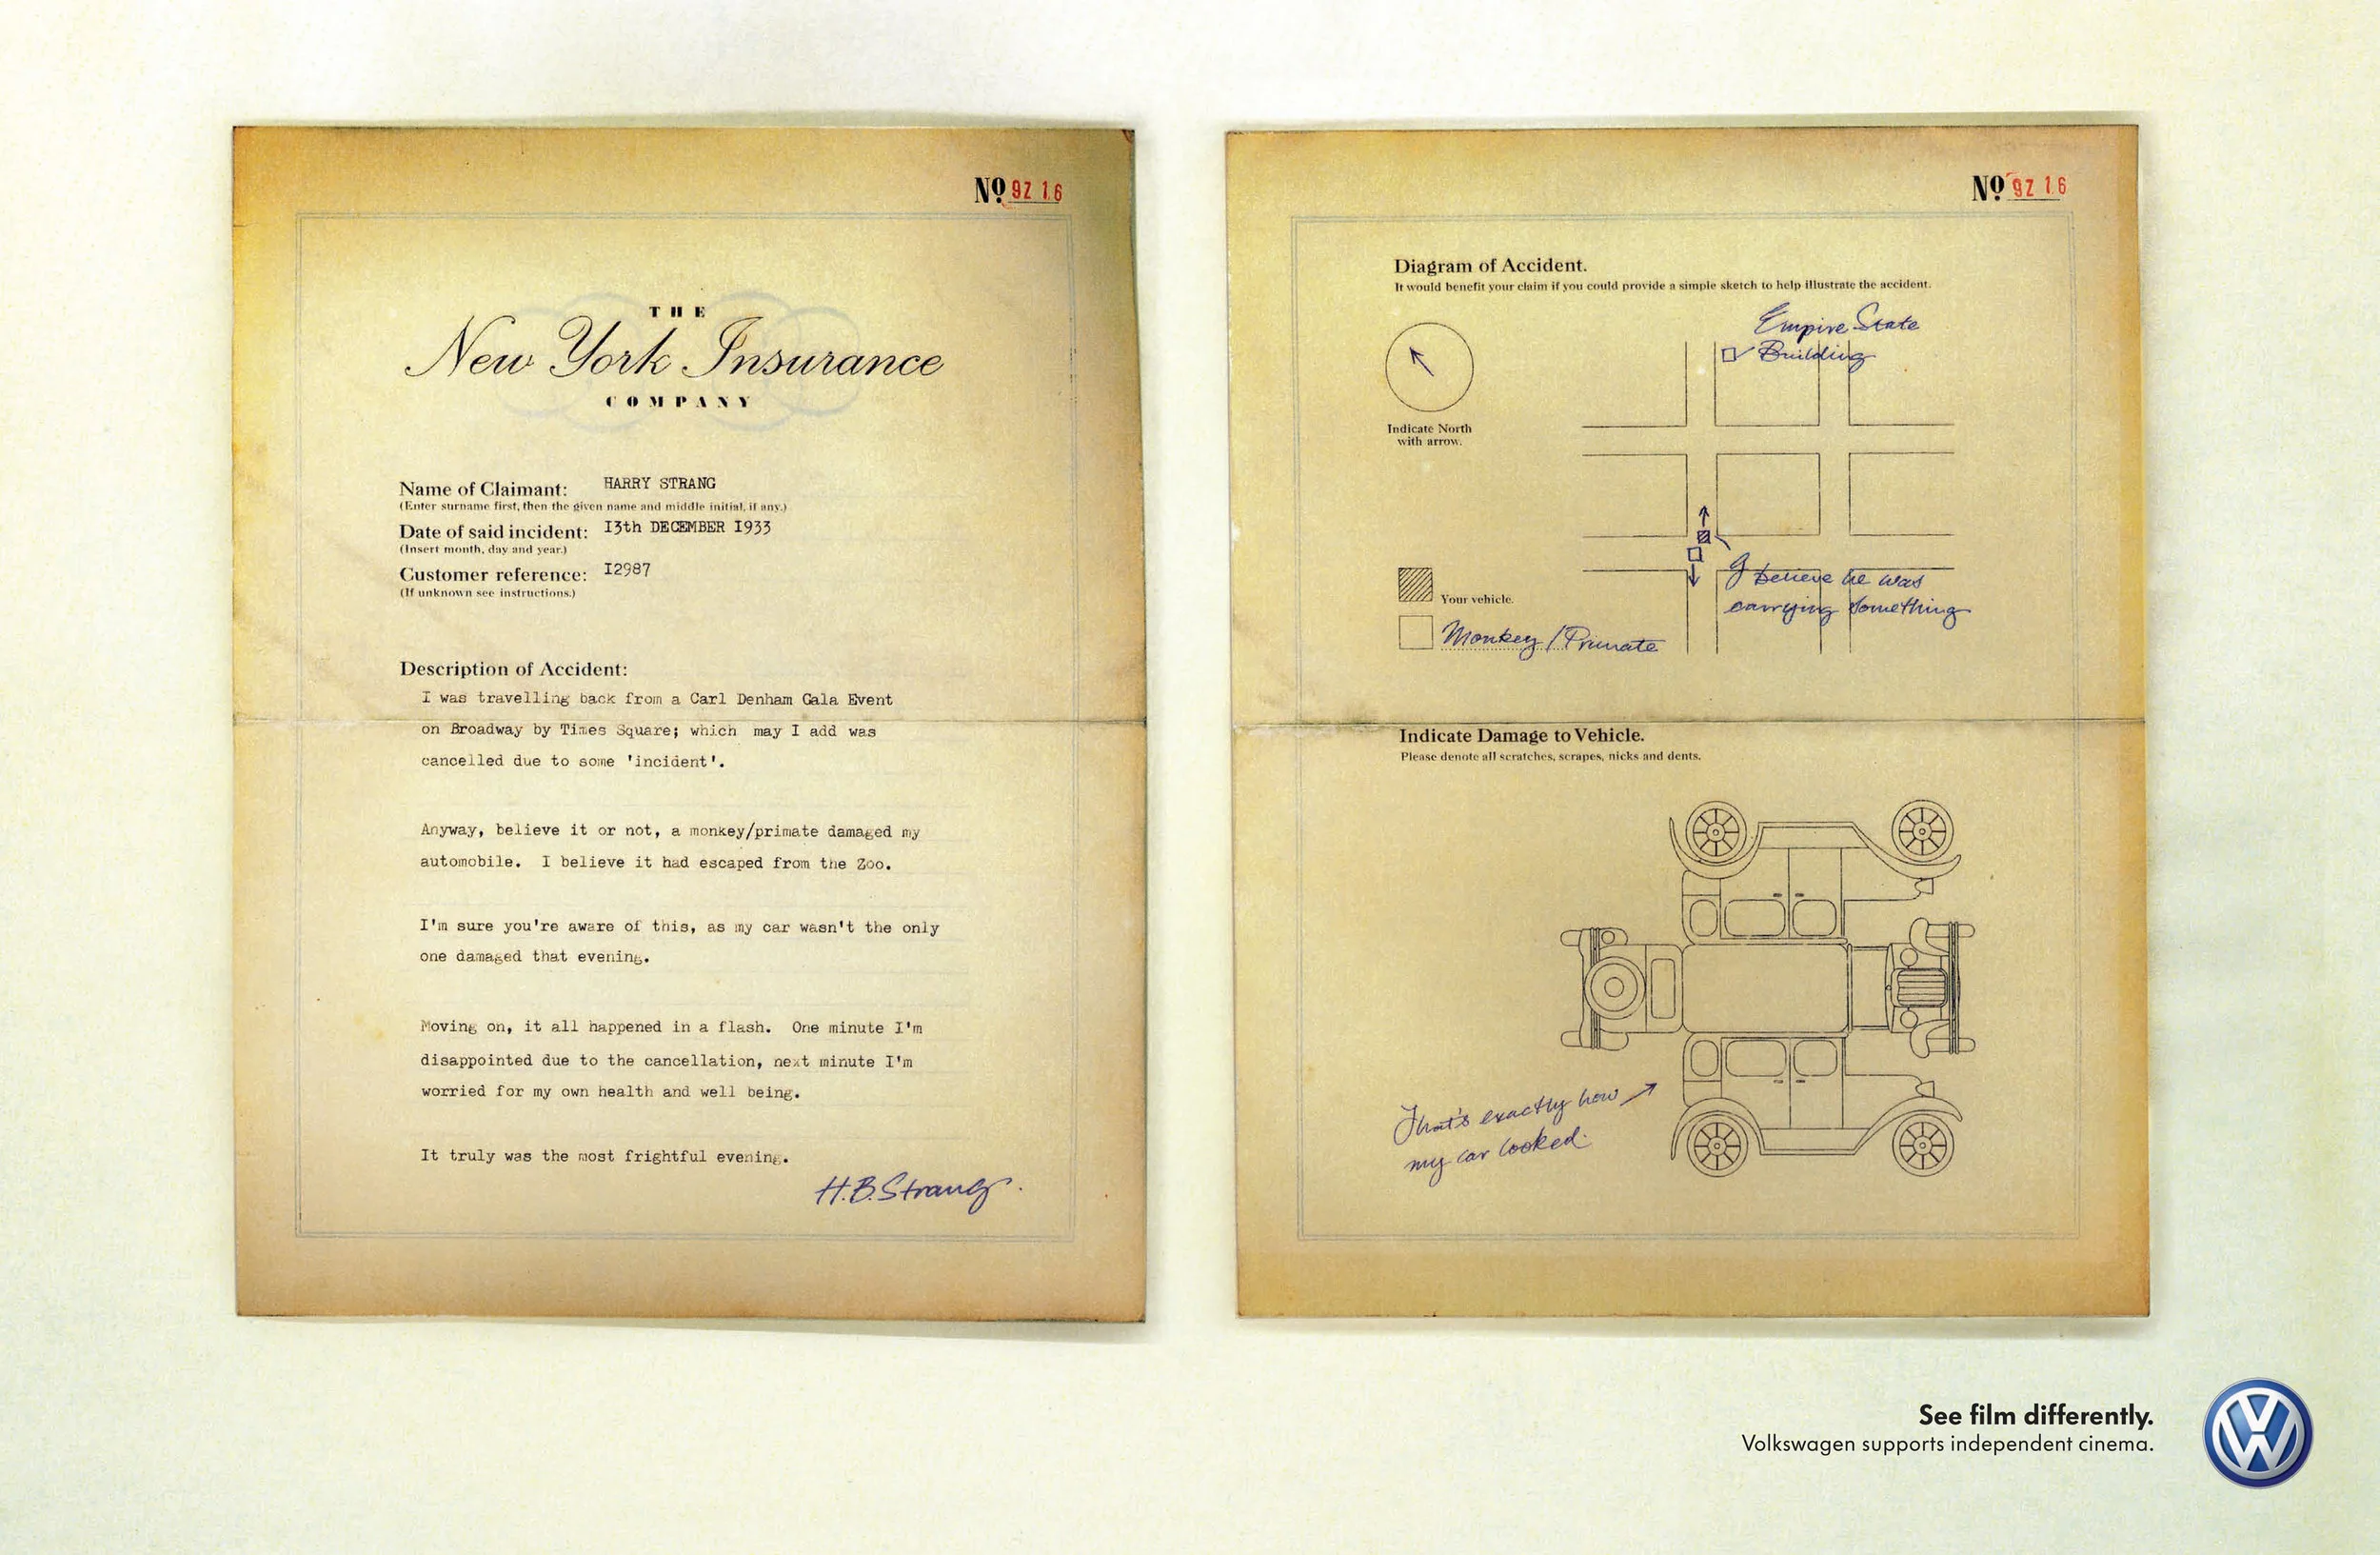 No 9Z 16
THE
New York Insurance
COMPANY
Name of Claimant: HARRY STRANG
(Enter surname first, then the given name and middle initial, if any.)
Date of said incident: I3th DECEMBER I933
(Insert month, day and year.)
Customer reference: I2987
(If unknown see instructions.)
Description of Accident:
I was travelling back from a Carl Denham Gala Event
on Broadway by Times Square; which may I add was
cancelled due to some 'incident'.
Anyway, believe it or not, a monkey/primate damaged my
automobile. I believe it had escaped from the Zoo.
I'm sure you're aware of this, as my car wasn't the only
one damaged that evening.
Moving on, it all happened in a flash. One minute I'm
disappointed due to the cancellation, next minute I'm
worried for my own health and well being.
It truly was the most frightful evening.
H.B.Strang.
No 9Z 16
Diagram of Accident.
It would benefit your claim if you could provide a simple sketch to help illustrate the accident.
Empire State
Building
Indicate North
with arrow.
I believe he was
carrying something
Your vehicle.
Monkey/Primate
Indicate Damage to Vehicle.
Please denote all scratches, scrapes, nicks and dents.
That's exactly how
my car looked.
See film differently.
Volkswagen supports independent cinema.